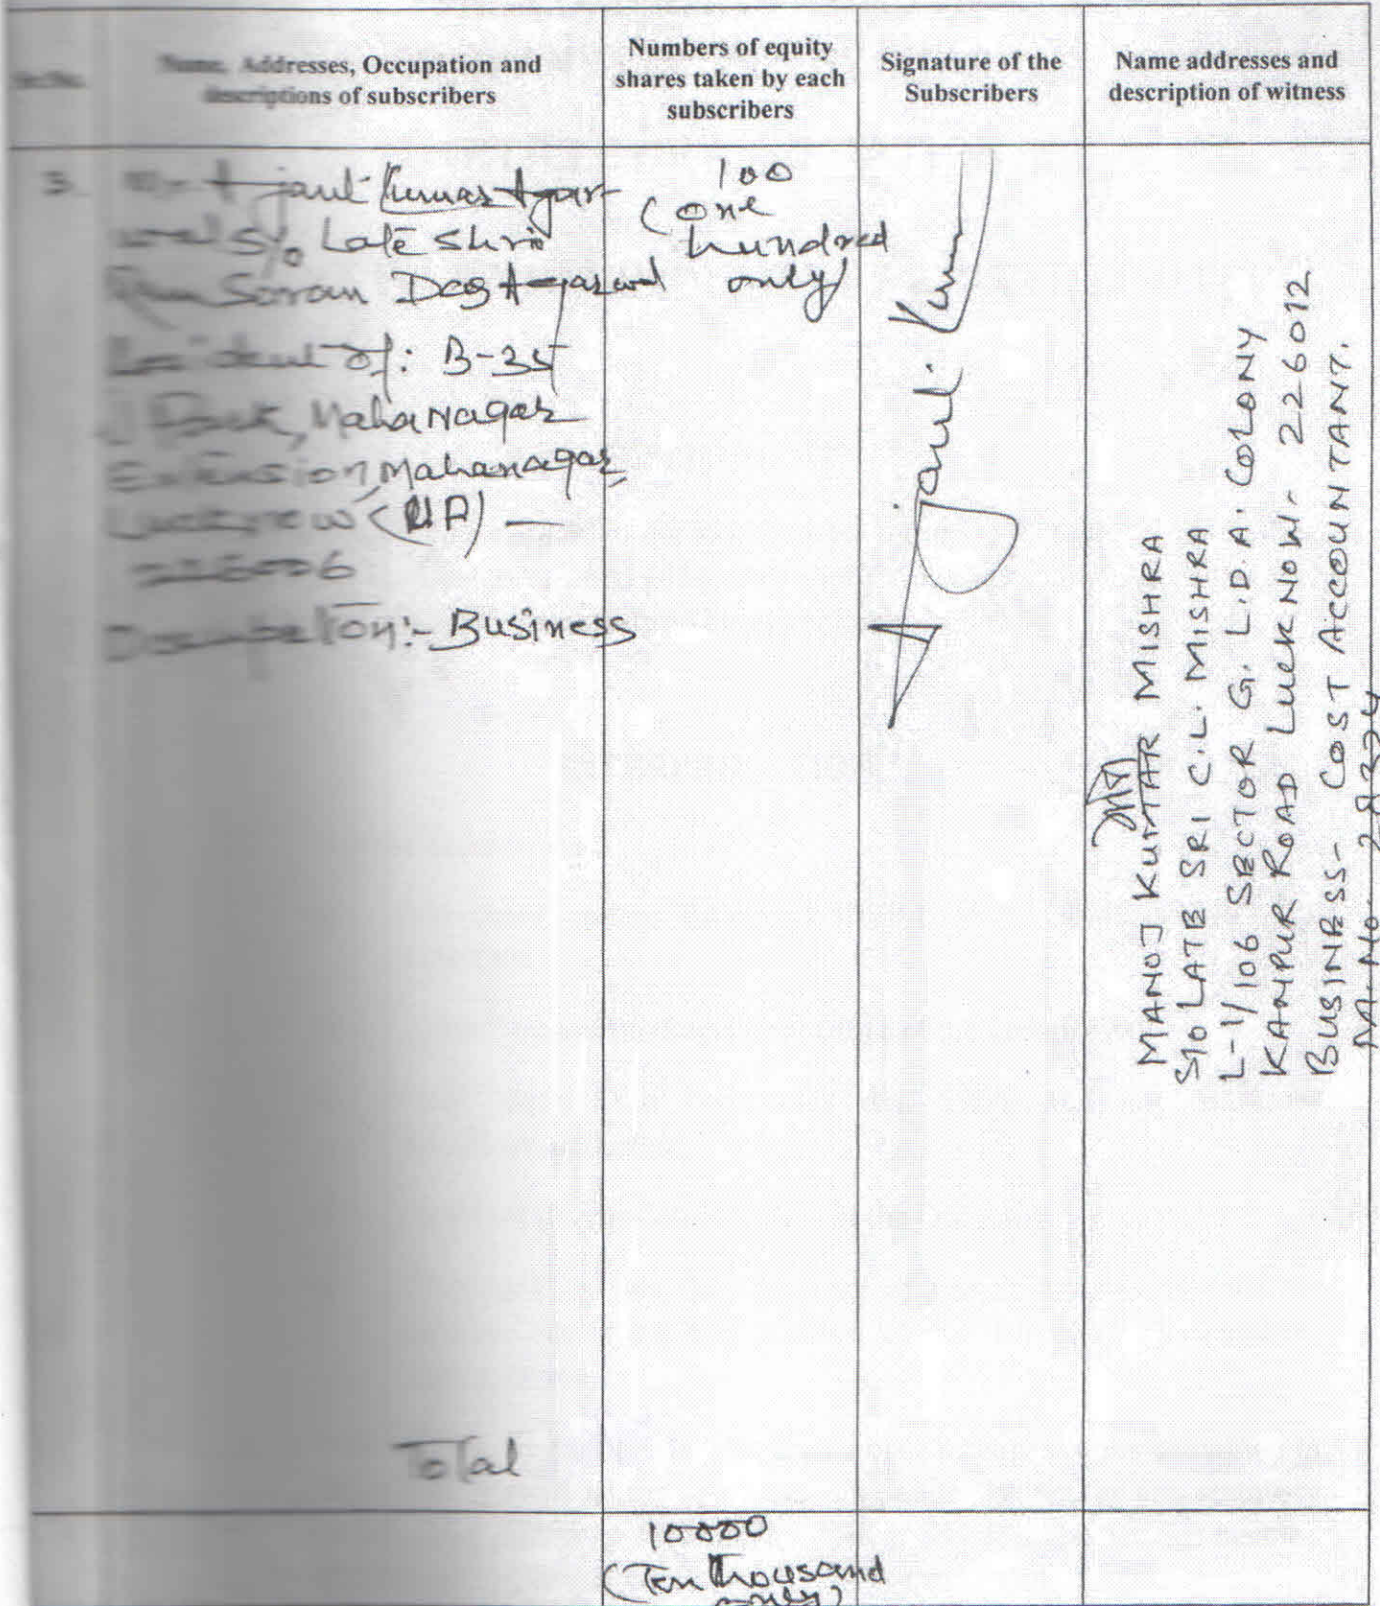 Name, Addresses, Occupation and
descriptions of subscribers
Numbers of equity
shares taken by each
subscribers
Signature of the
Subscribers
Name addresses and
description of witness
3.
Mr Ajant Kumar Agar-
wal S/o Late Shri
Ram Saran Das Agarwal
Resident of: B-35
J Park, Mahanagar
Extension, Mahanagar,
Lucknow (UP) —
226006
Occupation:- Business
100
(one
hundred
only)
Ajant Kum
MANOJ KUMAR MISHRA
S/O LATE SRI C.L. MISHRA
L-1/106 SECTOR G. L.D.A. COLONY
KANPUR ROAD LUCKNOW- 226012
BUSINESS- COST ACCOUNTANT.
M. No.
Total
10000
(Ten Thousand
only)